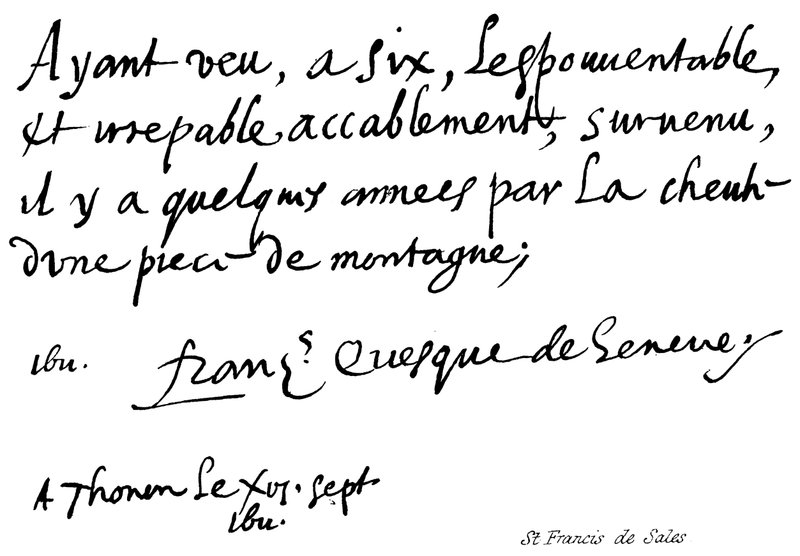 Ayant veu, a six, Lespouuentable,
et irrepable accablement, suruenu,
il y a quelques annees par La cheute
dune piece de montagne;
franc.s Euesque de Geneue.
A Thonon Le xvi. sept
St Francis de Sales